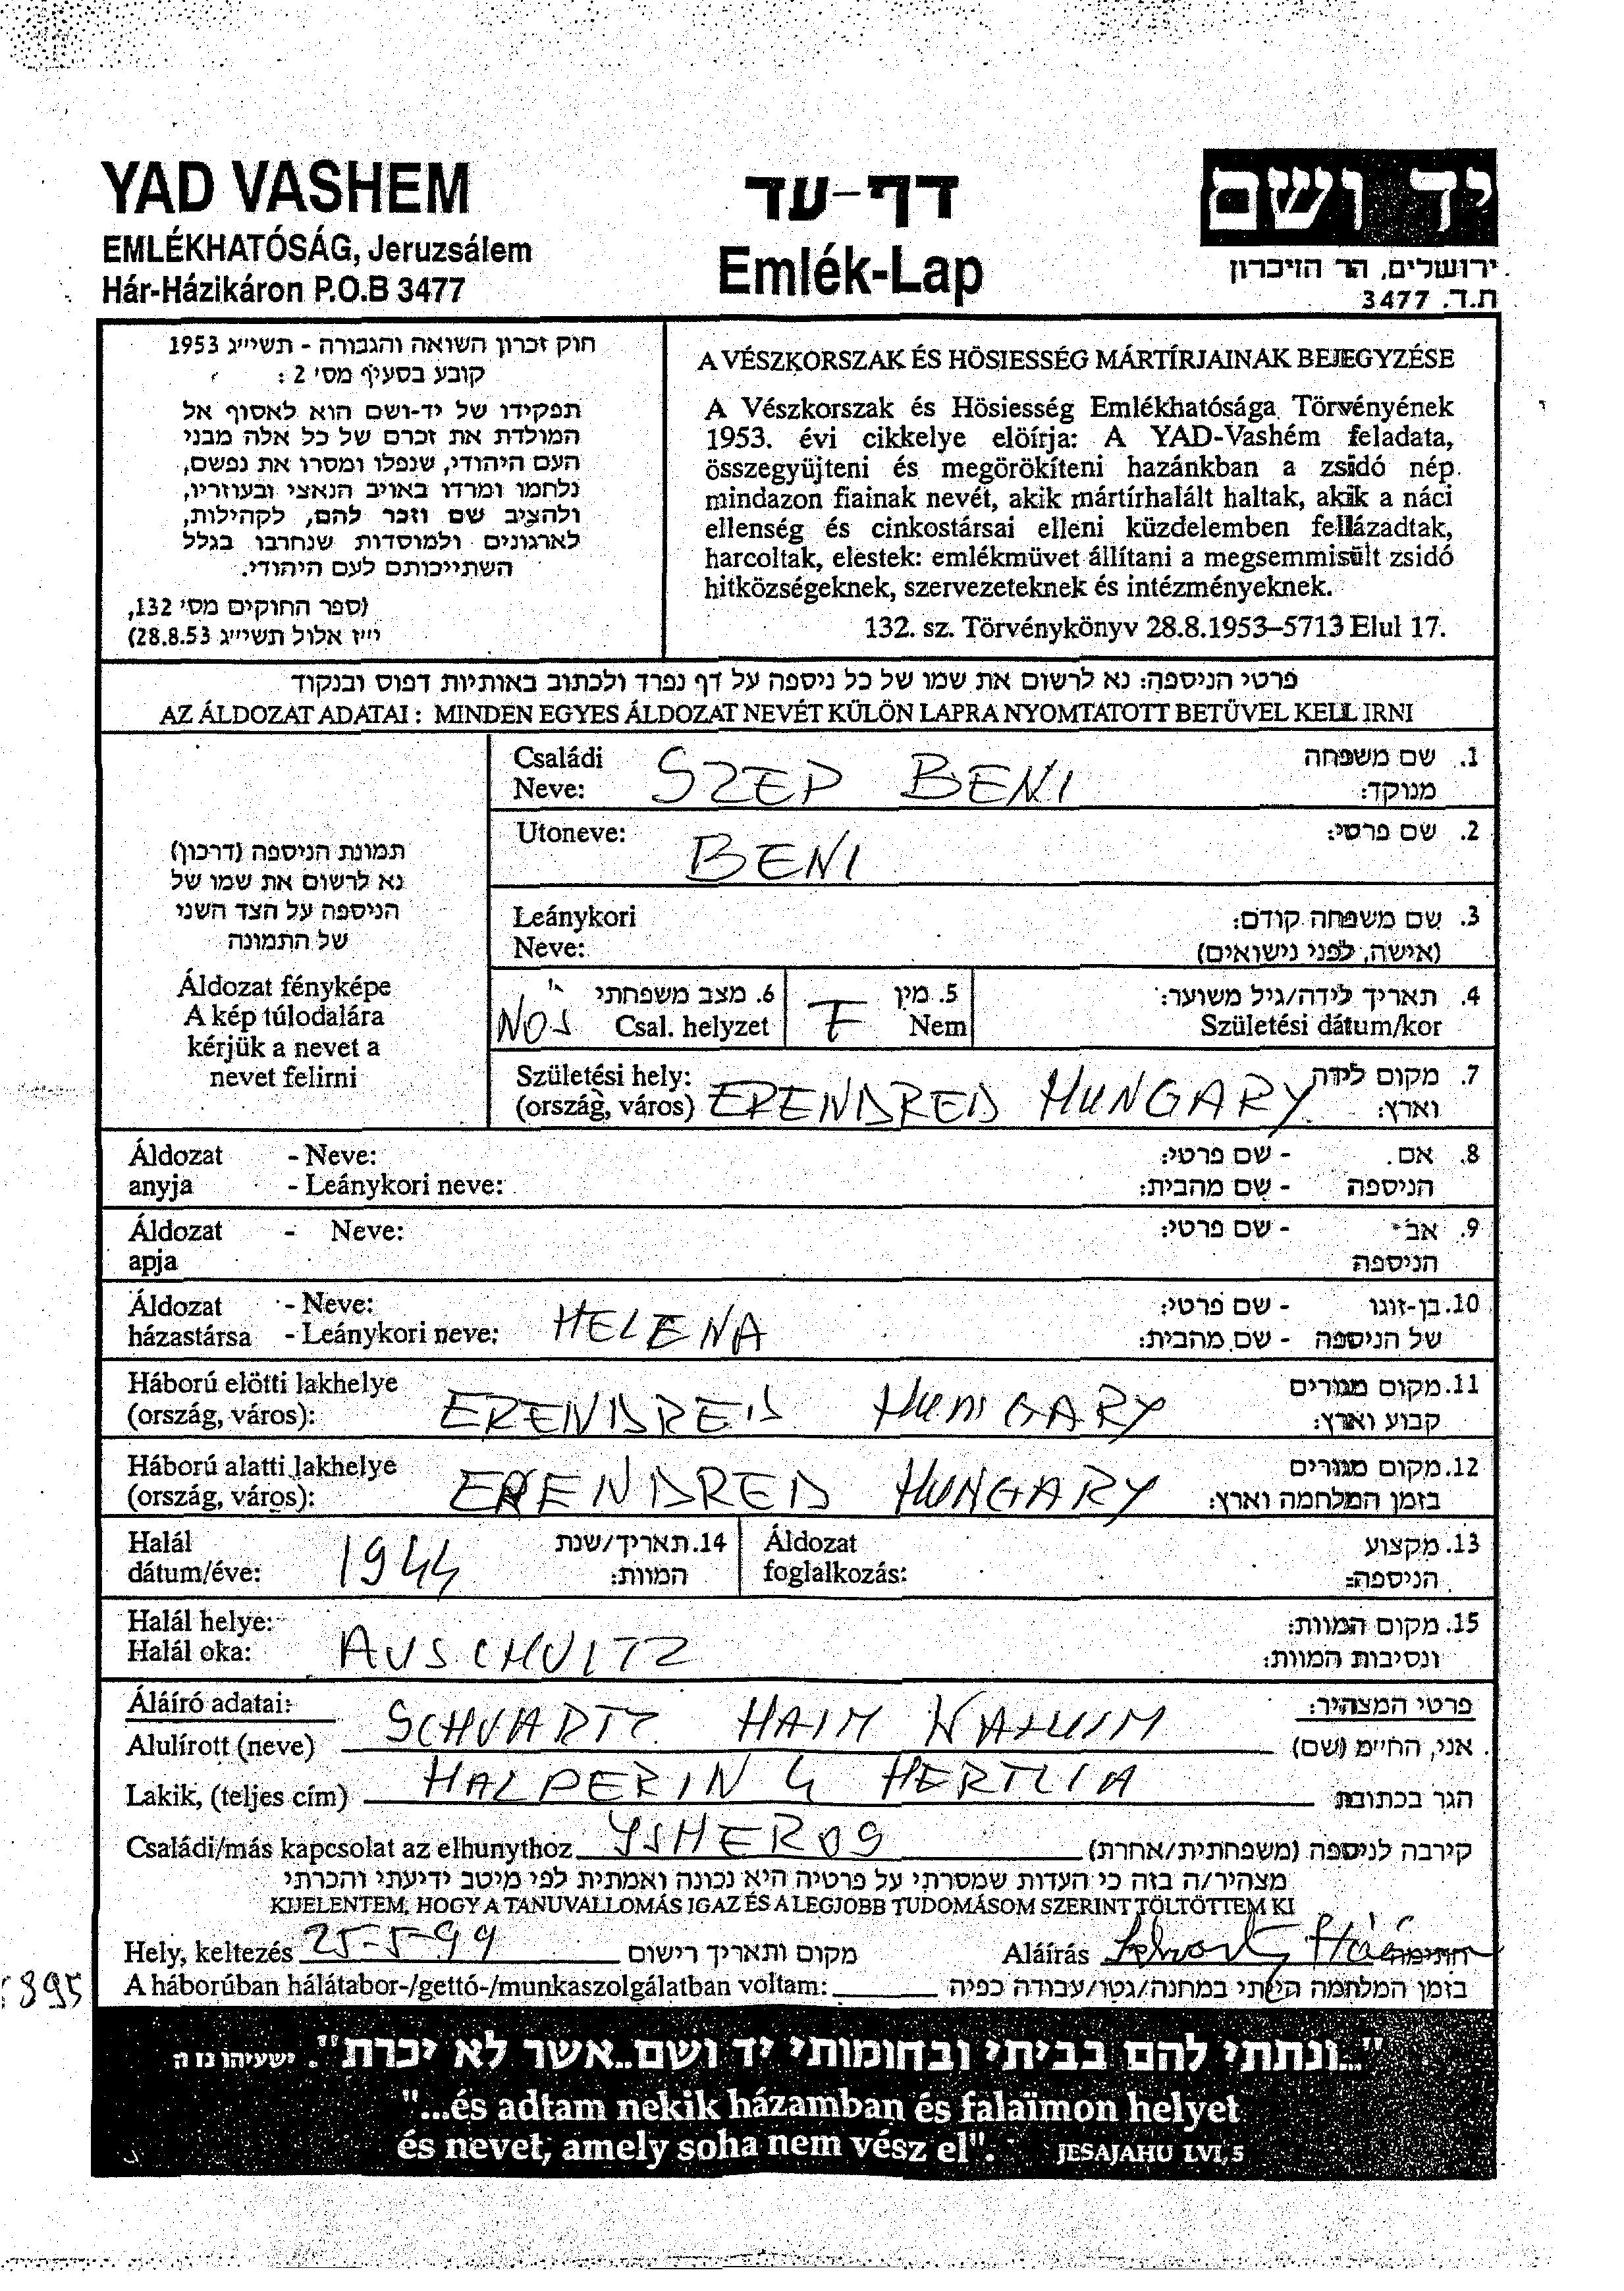 YAD VASHEM
EMLÉKHATÓSÁG, Jeruzsálem
Hár-Házikáron P.O.B 3477
דף-עד
Emlék-Lap
יד ושם
ירושלים, הר הזיכרון
ת.ד. 3477
חוק זכרון השואה והגבורה - תשי״ג 1953
קובע בסעיף מס׳ 2 :
תפקידו של יד-ושם הוא לאסוף אל
המולדת את זכרם של כל אלה מבני
העם היהודי, שנפלו ומסרו את נפשם,
נלחמו ומרדו באויב הנאצי ובעוזריו,
ולהציב שם וזכר להם, לקהילות,
לארגונים ולמוסדות שנחרבו בגלל
השתייכותם לעם היהודי.
(ספר החוקים מס׳ 132,
י״ז אלול תשי״ג 28.8.53)
A VÉSZKORSZAK ÉS HÖSIESSÉG MÁRTÍRJAINAK BEJEGYZÉSE
A Vészkorszak és Hösiesség Emlékhatósága Törvényének
1953. évi cikkelye elöírja: A YAD-Vashém feladata,
összegyüjteni és megörökíteni hazánkban a zsidó nép
mindazon fiainak nevét, akik mártírhalált haltak, akik a náci
ellenség és cinkostársai elleni küzdelemben fellázadtak,
harcoltak, elestek: emlékmüvet állítani a megsemmisült zsidó
hitközségeknek, szervezeteknek és intézményeknek.
132. sz. Törvénykönyv 28.8.1953–5713 Elul 17.
פרטי הניספה: נא לרשום את שמו של כל ניספה על דף נפרד ולכתוב באותיות דפוס ובנקוד
AZ ÁLDOZAT ADATAI : MINDEN EGYES ÁLDOZAT NEVÉT KÜLÖN LAPRA NYOMTATOTT BETÜVEL KELL IRNI
תמונת הניספה (דרכון)
נא לרשום את שמו של
הניספה על הצד השני
של התמונה
Áldozat fényképe
A kép túlodalára
kérjük a nevet a
nevet felirni
Családi SZEP BENI 1. שם משפחה
Neve: מנוקד:
Utoneve: BENI 2. שם פרטי:
Leánykori 3. שם משפחה קודם:
Neve: (אישה, לפני נישואים)
NOS 6. מצב משפחתי
Csal. helyzet
F 5. מין
Nem
4. תאריך לידה/גיל משוער:
Születési dátum/kor
Születési hely: 7. מקום לידה
(ország, város) ERENDRED HUNGARY וארץ:
Áldozat - Neve: - שם פרטי: 8. אם
anyja - Leánykori neve: - שם מהבית: הניספה
Áldozat - Neve: - שם פרטי: 9. אב
apja הניספה
Áldozat - Neve: HELENA - שם פרטי: 10. בן-זוגו
házastársa - Leánykori neve: - שם מהבית: של הניספה
Háború elötti lakhelye 11. מקום מגורים
(ország, város): ERENDRED HUNGARY קבוע וארץ:
Háború alatti lakhelye 12. מקום מגורים
(ország, város): ERENDRED HUNGARY בזמן המלחמה וארץ:
Halál 1944 14. תאריך/שנת
dátum/éve: המוות:
Áldozat 13. מקצוע
foglalkozás: הניספה:
Halál helye: 15. מקום המוות:
Halál oka: AUSCHVITZ ונסיבות המוות:
Áláíró adatai: פרטי המצהיר:
Alulírott (neve) SCHVARTZ HAIM NAHUIM אני, החי״מ (שם)
Lakik, (teljes cím) HALPERIN 4 HERTLIA הגר בכתובת
Családi/más kapcsolat az elhunythoz YSHEROS קירבה לניספה (משפחתית/אחרת)
מצהיר/ה בזה כי העדות שמסרתי על פרטיה היא נכונה ואמתית לפי מיטב ידיעתי והכרתי
KIJELENTEM, HOGY A TANUVALLOMÁS IGAZ ÉS A LEGJOBB TUDOMÁSOM SZERINT TÖLTÖTTEM KI
Hely, keltezés 25-5-99 מקום ותאריך רישום Aláírás חתימה
A háborúban hálátabor-/gettó-/munkaszolgálatban voltam: בזמן המלחמה הייתי במחנה/גטו/עבודה כפיה
895
"...ונתתי להם בביתי ובחומותי יד ושם..אשר לא יכרת". ישעיהו נו ה
"...és adtam nekik házamban és falaimon helyet
és nevet, amely soha nem vész el". JESAJAHU LVI, 5